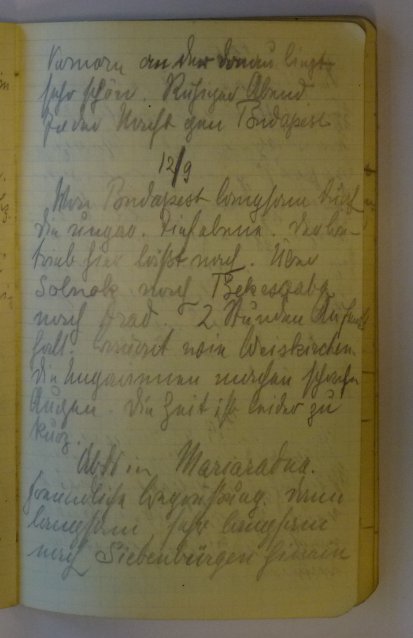 Komorn an der Donau liegt
sehr schön. Ruhiger Abend
In der Nacht gen Budapest
12/9
Von Budapest langsam durch
die ungar. Tiefebene. Der
läßt nach. Über
Solnok nach Bekescaba
nach Arad. 2 Stunden Aufent
halt. von Weiskirchen
Die Ungarinnen machen scharfe
Augen. Die Zeit ist leider zu
kurz.
Abds in Mariaradna.
freundliche Begrüßung. Dann
langsam sehr langsam
nach Siebenbürgen hinein